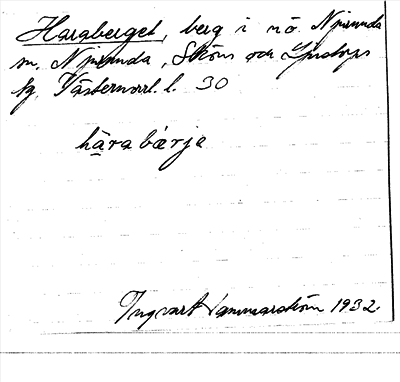 Haraberget, berg i nö Njurunda
sn. Njurunda, Sköns och Ljustorps
tg. Västernorrl. l. 30
hàra bærje
Ingvart Hammarström 1932